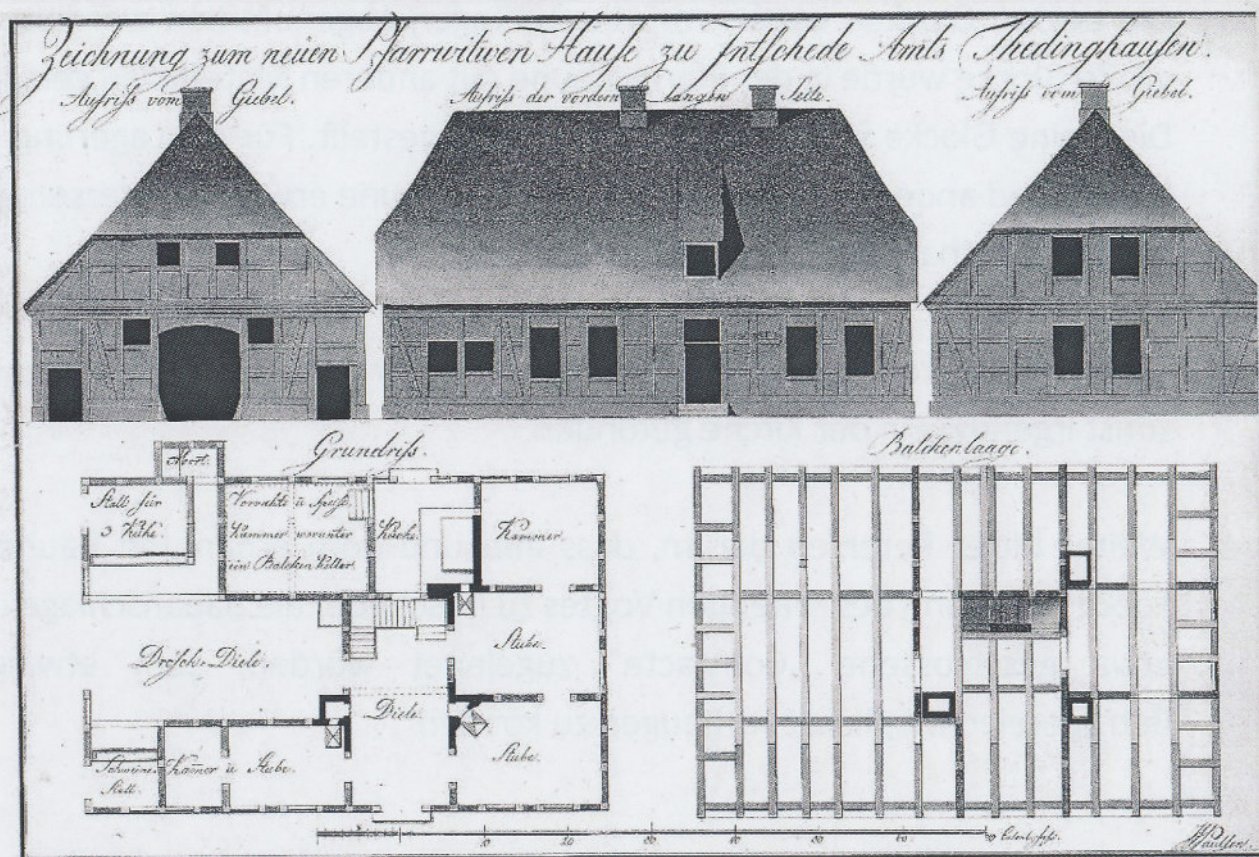 Zeichnung zum neuen Pfarrwitwen Hause zu Intschede Amts Thedinghausen.
Aufriss vom Giebel.
Aufriss der vordern langen Seite.
Aufriss vom Giebel.
Grundriss.
Balckenlaage.
Abort.
Stall für
3 Kühe.
Vorraths u Speise
Kammer worunter
ein Balcken Keller
Küche.
Kammer.
Dresch-Diele.
Stube.
Diele.
Schweine-
Stall.
Kam̄er u Stube.
Stube.
10 20 30 40 50 60 70